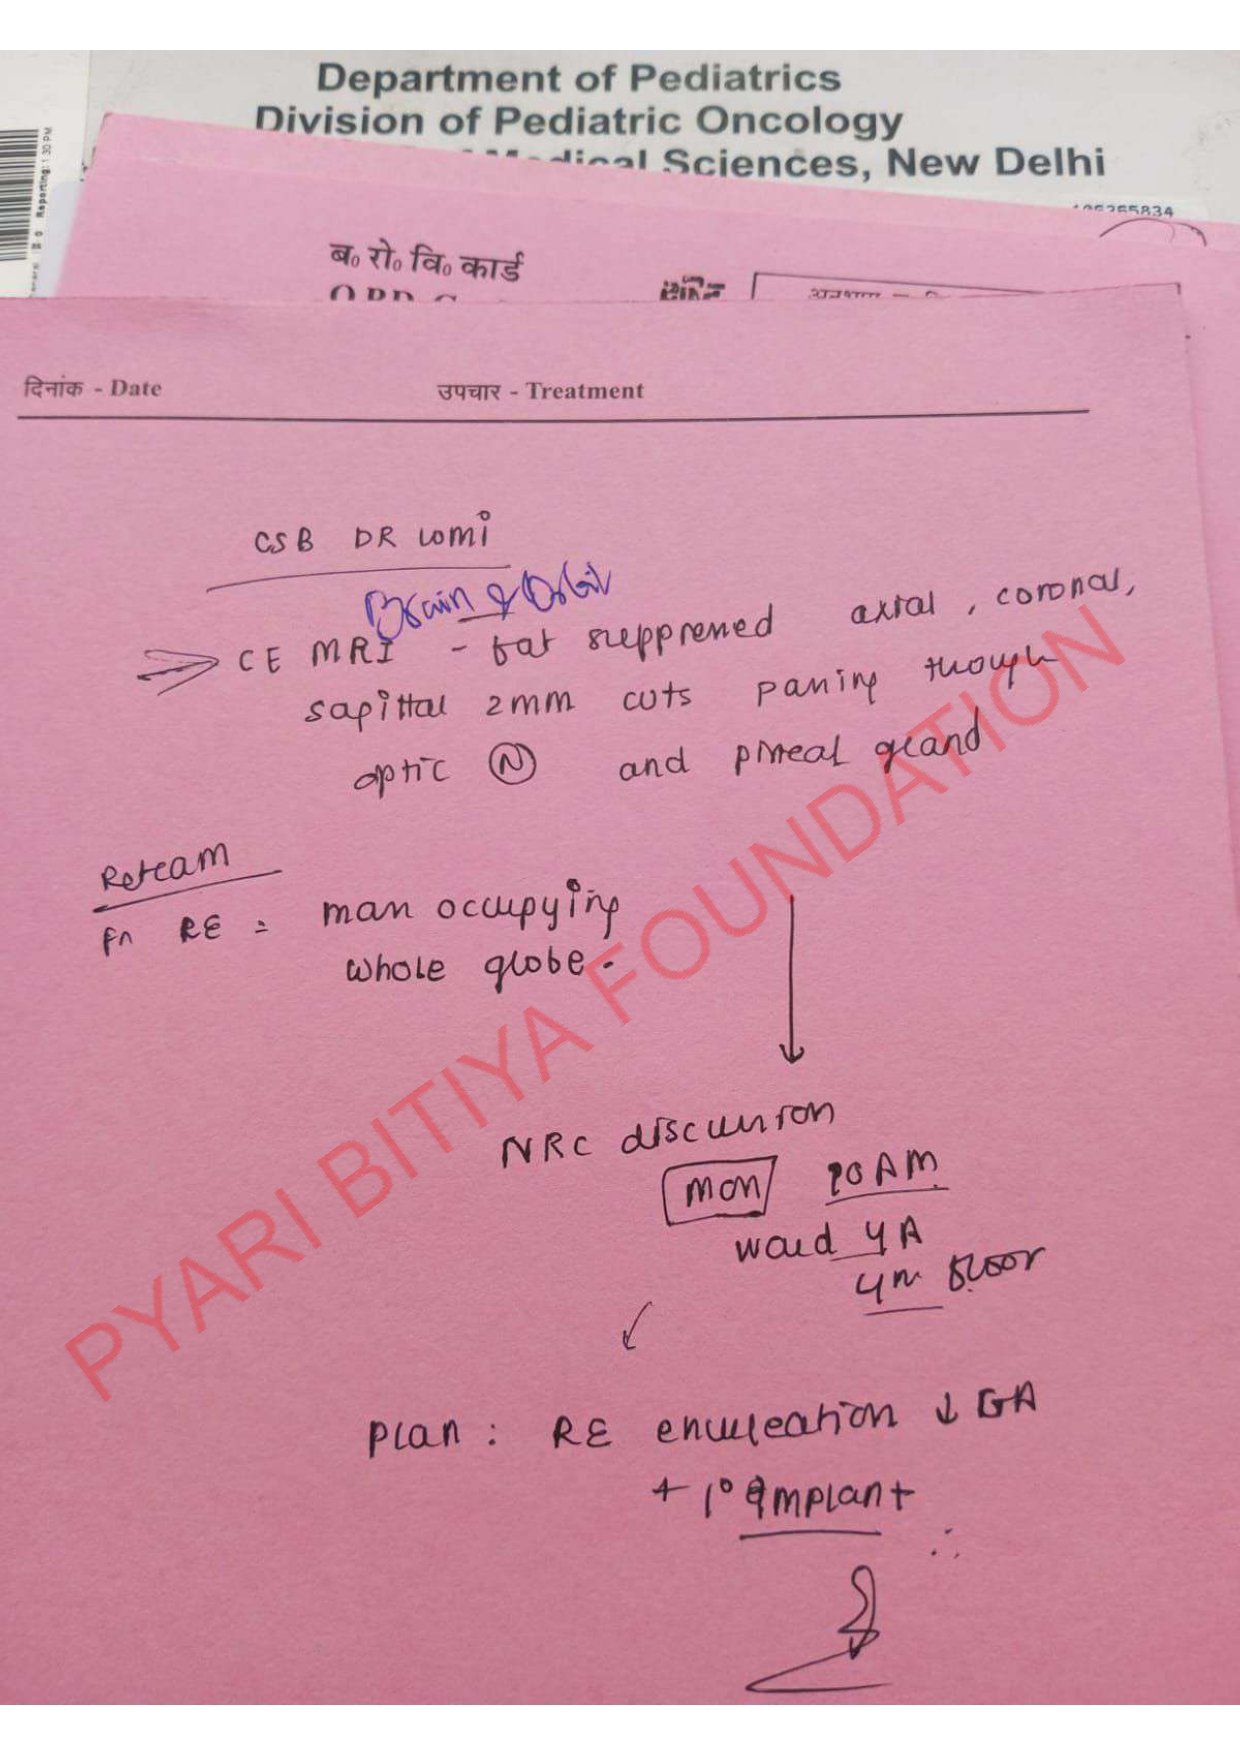 Department of Pediatrics
Division of Pediatric Oncology
Medical Sciences, New Delhi
Reporting: 1:30 PM
ब० रो० वि० कार्ड
OPD C
दिनांक - Date उपचार - Treatment
CSB DR LOMI
Brain & Orbit
CE MRI - fat suppressed axial, coronal,
sagittal 2mm cuts passing though
optic (N) and pineal gland
Retcam
fn RE = mass occupying
whole globe.
NRC discussion
Mon 10 AM
ward 4A
4th floor
Plan : RE enucleation ↓ GA
+ 1° implant
PYARI BITIYA FOUNDATION